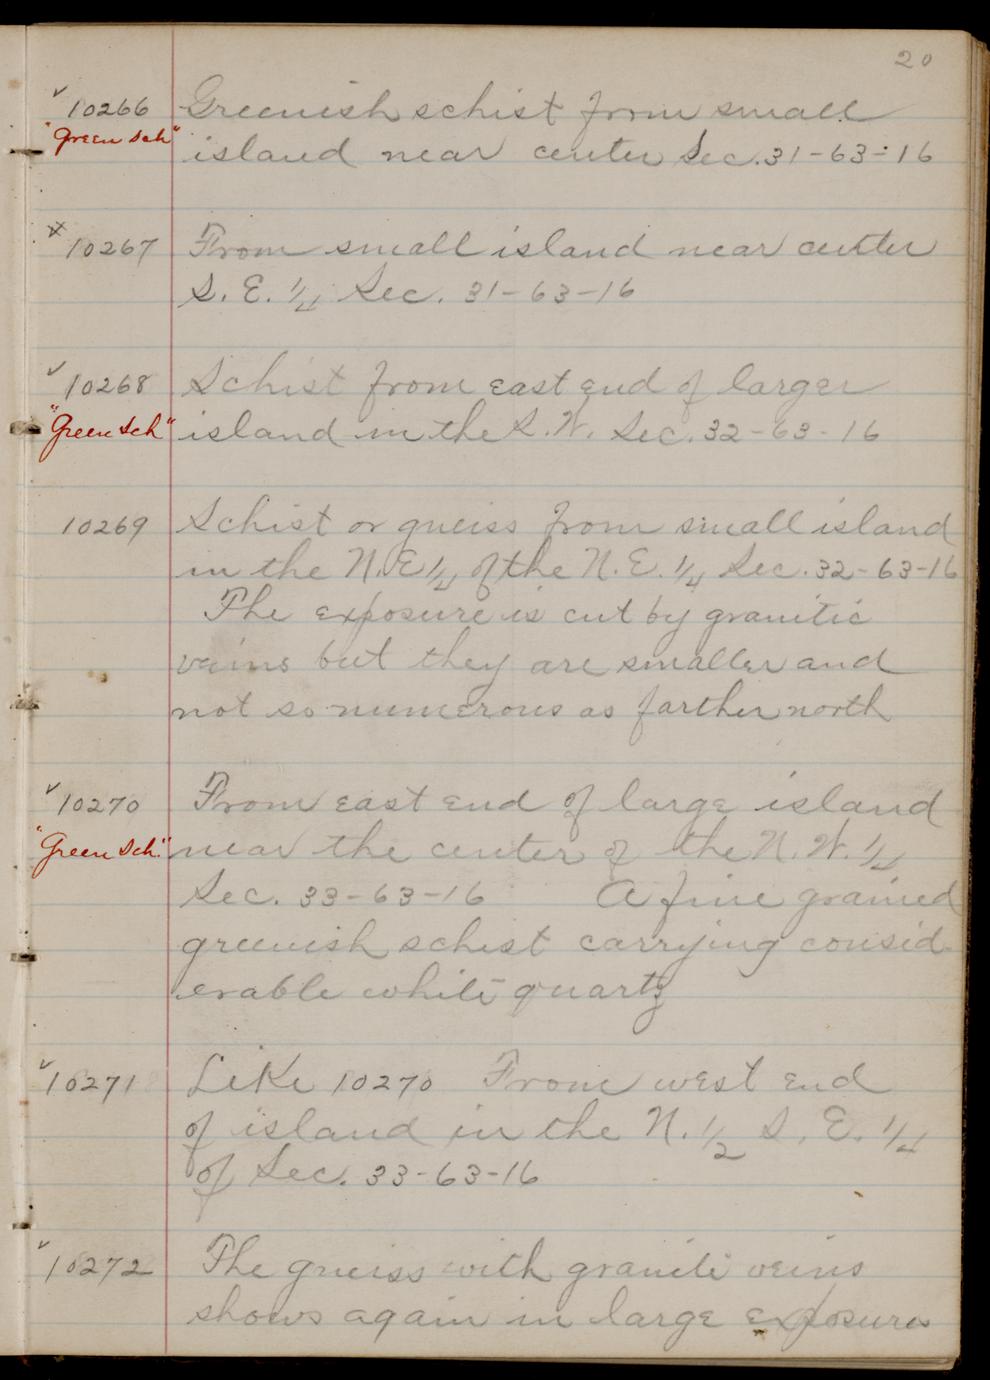 20
✓ 10266 Greenish schist from small
"Green Sch" island near center Sec. 31-63-16
x 10267 From small island near center
S. E. 1/4 Sec. 31-63-16
✓ 10268 Schist from east end of larger
"Green Sch" island in the S. W. Sec. 32-63-16
10269 Schist or gneiss from small island
in the N.E 1/4 of the N.E. 1/4 Sec. 32-63-16
The exposure is cut by granitic
veins but they are smaller and
not so numerous as farther north
✓ 10270 From east end of large island
"Green Sch." near the center of the N.W. 1/4
Sec. 33-63-16 A fine grained
greenish schist carrying consid-
erable white quartz
✓ 10271 Like 10270 From west end
of island in the N. 1/2 S. E. 1/4
of Sec. 33-63-16
✓ 10272 The gneiss with granite veins
shows again in large exposures